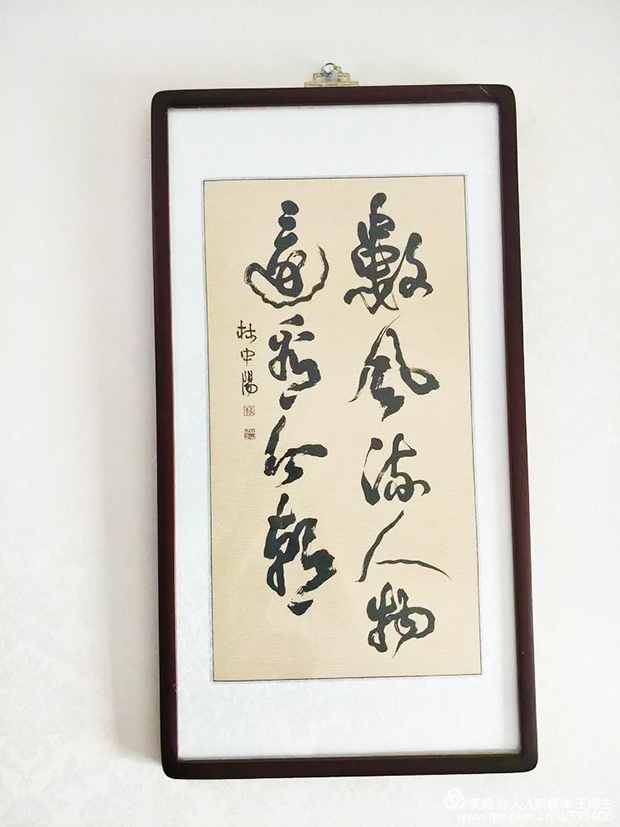 數風流人物
還看今朝
林中陽
美篇 @人人新媒体 王博生
www.meipian.cn/c/593406